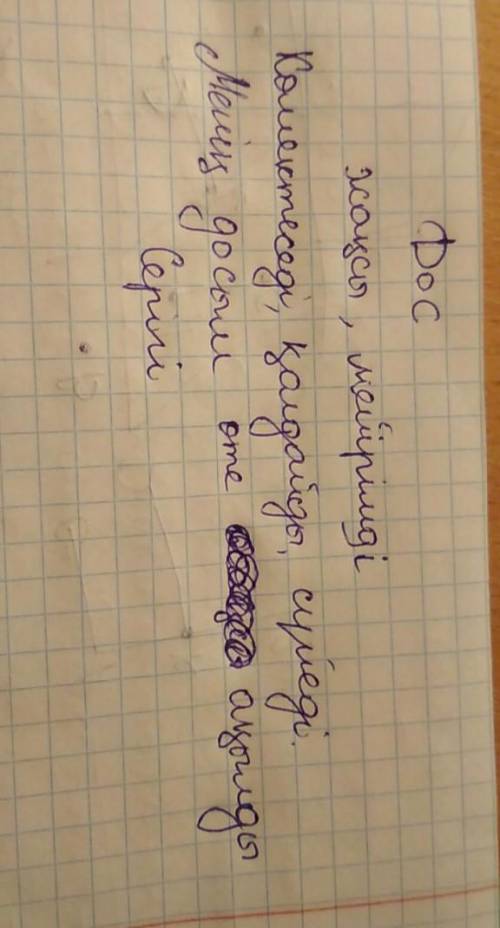 Дос
жақсы, мейірімді
Көмектеседі, қолдайды, сүйеді.
Менің досым өте ақылды
Серігі